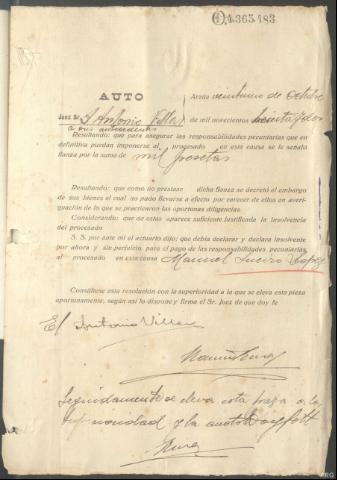 4.365.483
AUTO
Arzúa veintiuno de Octubre
Juez Sr. D Antonio Villar de mil novecientos treinta y dos
a sus antecedentes
Resultando: que para asegurar las responsabilidades pecuniarias que en
definitiva puedan imponerse al procesado en esta causa se le señaló
fianza por la suma de mil pesetas
Resultando: que como no prestase dicha fianza se decretó el embargo
de sus bienes el cual no pudo llevarse a efecto por carecer de ellos en averi-
guación de lo que se practicaron las oportunas diligencias.
Considerando: que de estas aparece suficiente justificada la insolvencia
del procesado
S. S. por ante mi el actuario dijo: que debía declarar y declara insolvente
por ahora y sin perjuicio para el pago de las responsabilidades pecuniarias
al procesado en esta causa Manuel Lucero Lopez
Consúltese esta resolución con la superioridad a la que se eleva esta pieza
oportunamente, según así lo dispone y firma el Sr. Juez de que doy fe
Antonio Villar
Seguidamente se eleva esta pieza a la
superioridad doy fe